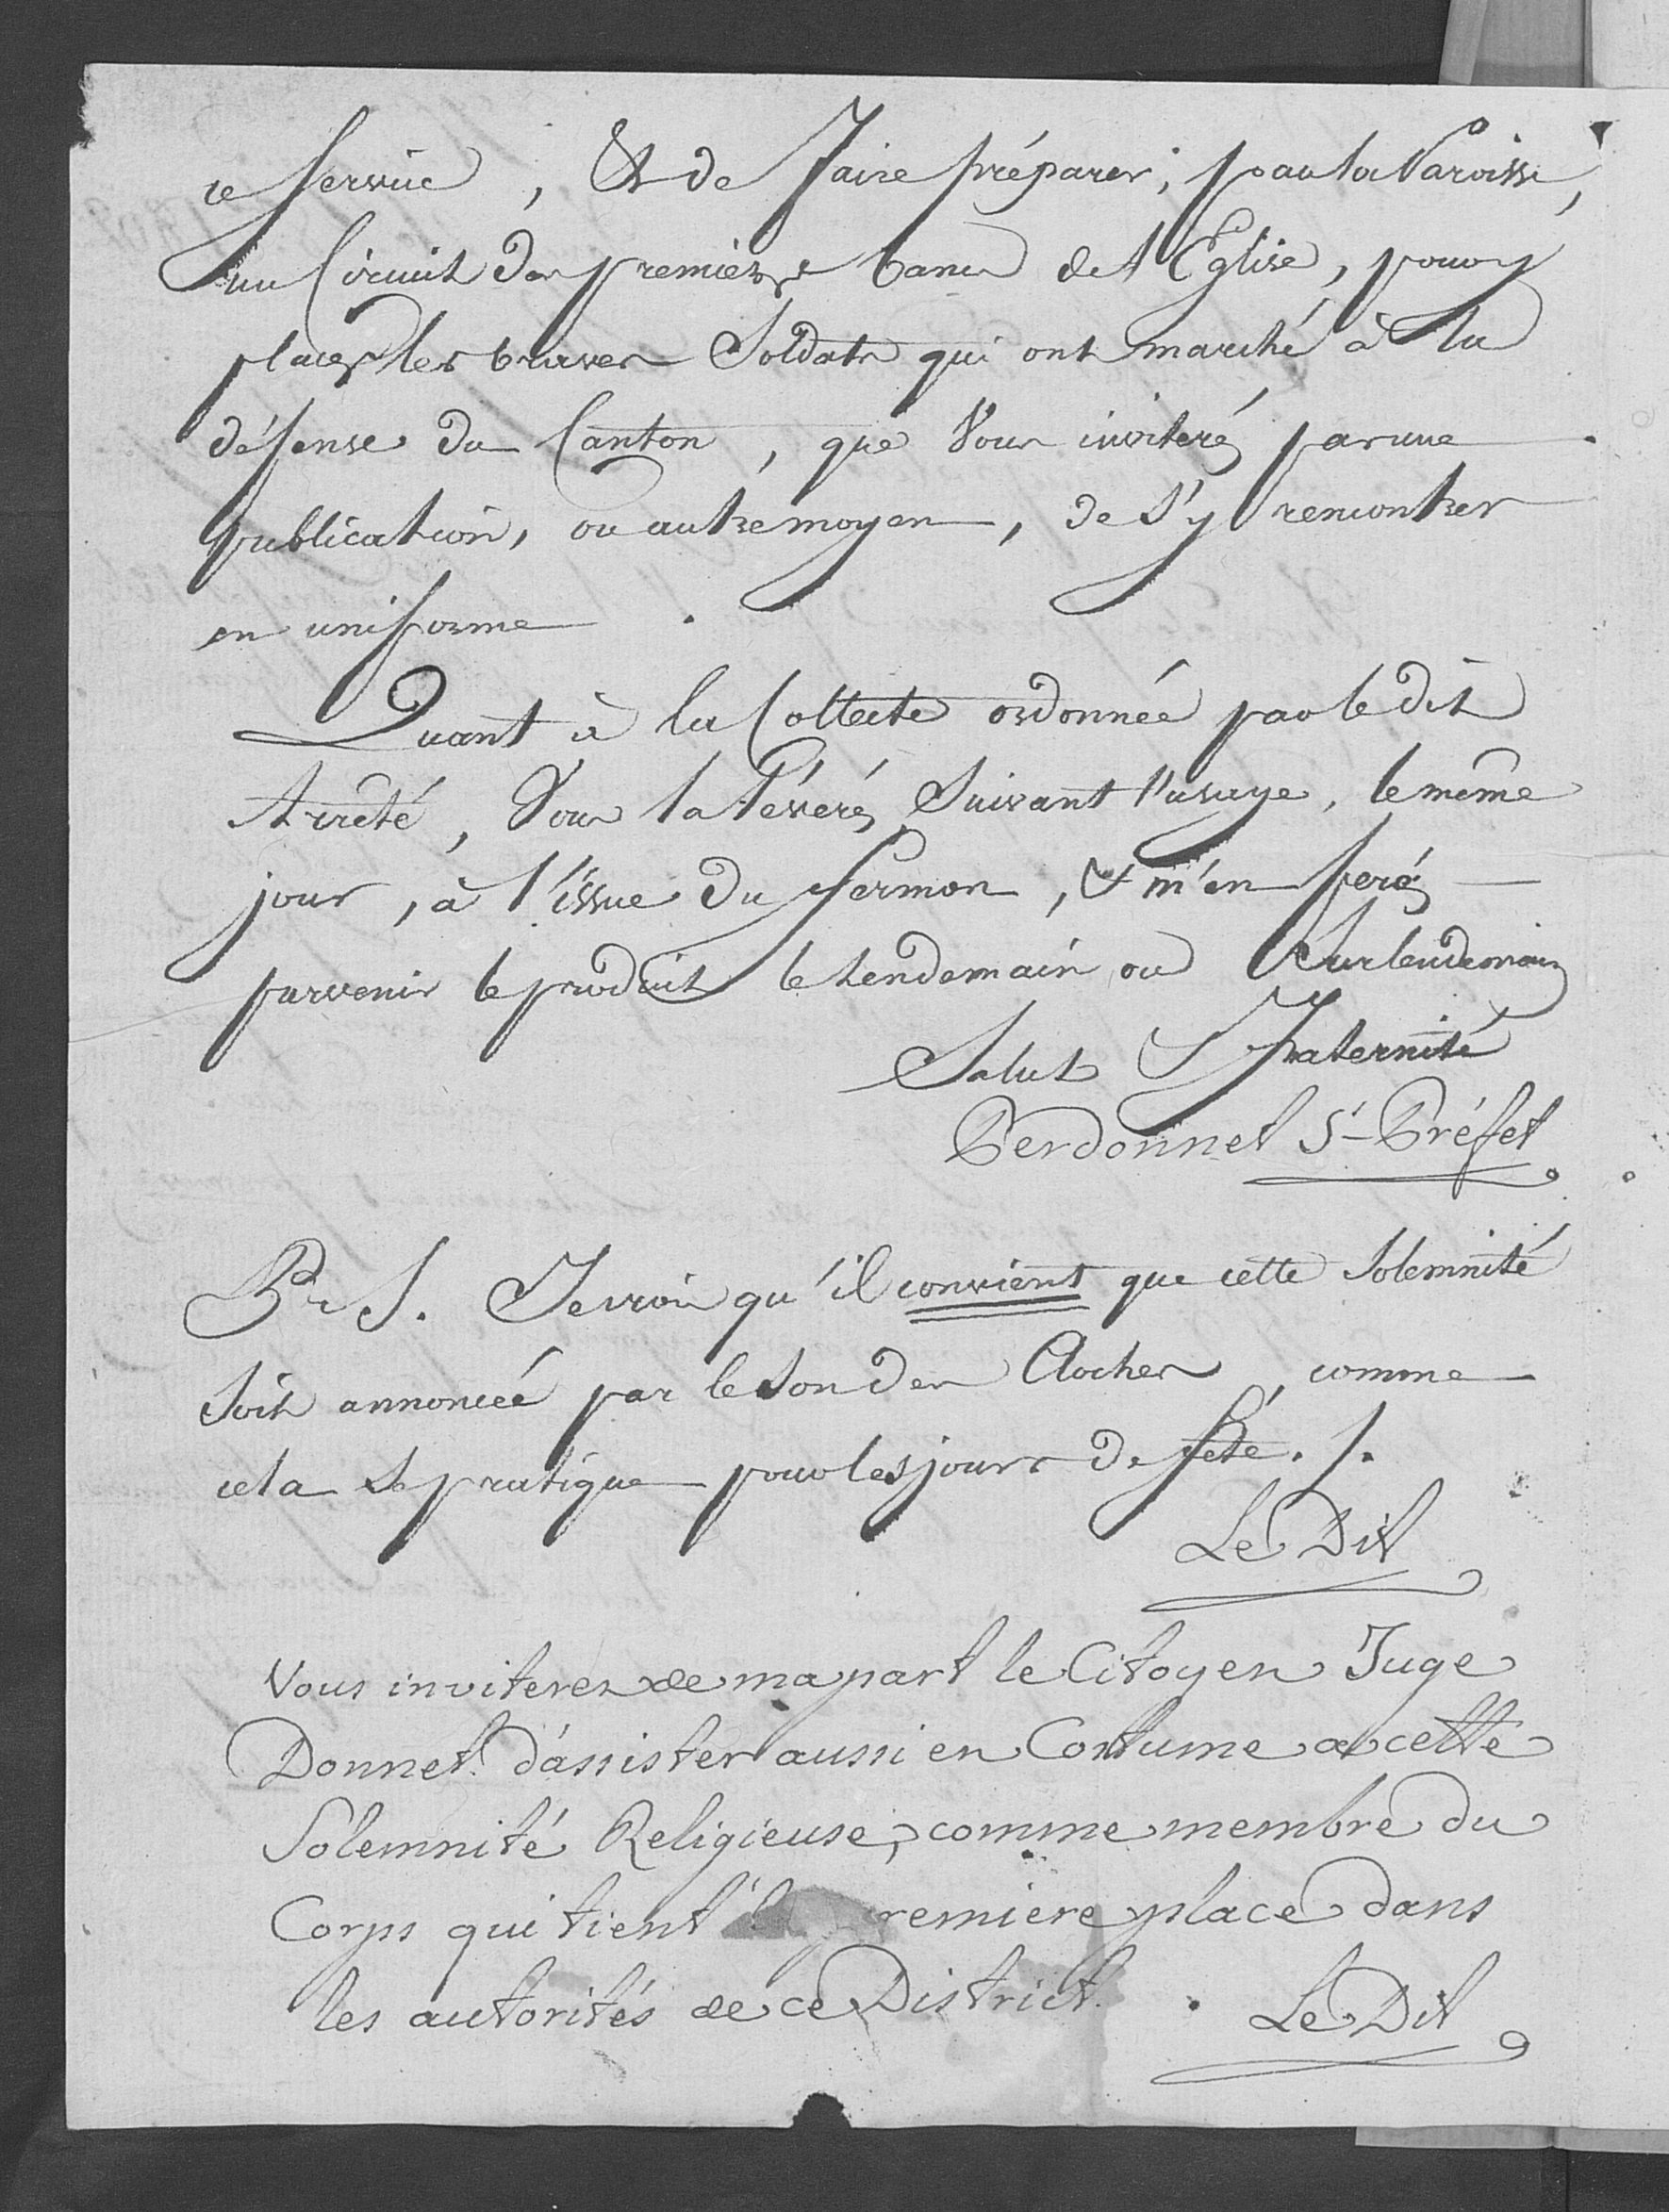 ce Service, & de Faire préparer, par la Paroisse,
un Circuit des premiers bancs de l'Eglise, pour y
placer les braves Soldats qui ont marché à la
défense du Canton, que Vous inviterés par une
publication, ou autre moyen, de s'y rencontrer
en uniforme.
Quant à la Collecte ordonnée par le dit
Arrêté, Vous la léverés, Suivant l'usage, le même
jour, à l'issue du Sermon, & m'en ferés
parvenir le produit le lendemain ou Surlendemain
Salut & Fraternité
Perdonnet S-Préfet
P. S. Je crois qu'il convient que cette Solemnité
Soit annoncée par le Son des Cloches, comme
cela se pratique pour les jours de fête. /.
Le Dit
Vous inviterez de ma part le Citoyen Juge
Donnet d'assister aussi en Costume a cette
Solemnité Religieuse, comme membre du
Corps qui tient la premiere place dans
les autorités de ce District. Le Dit